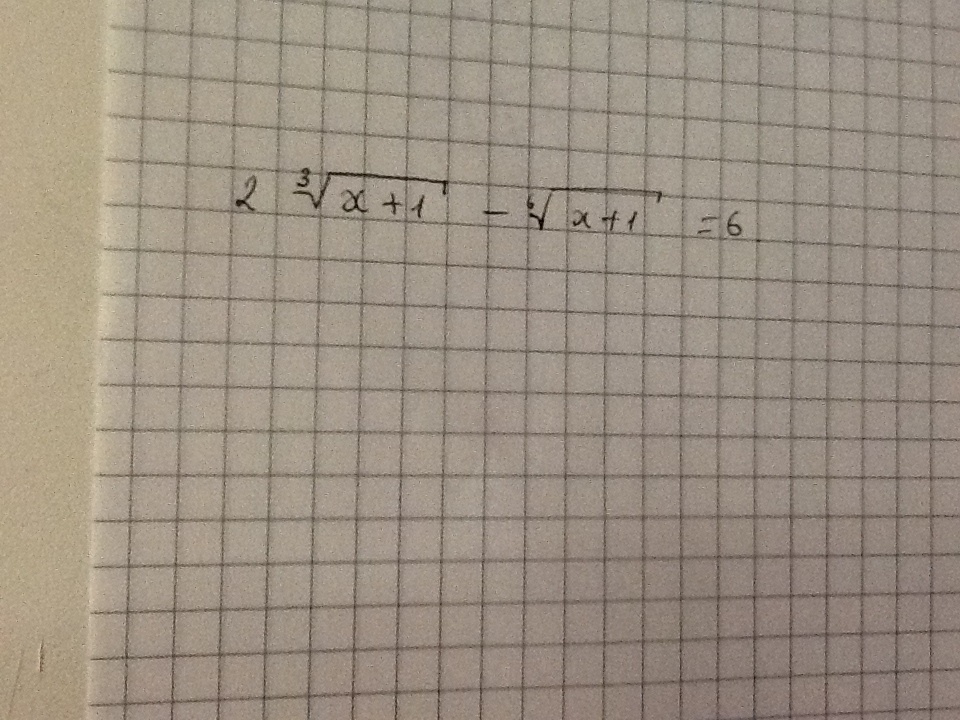 2 ∛(x+1) − ⁶√(x+1) = 6